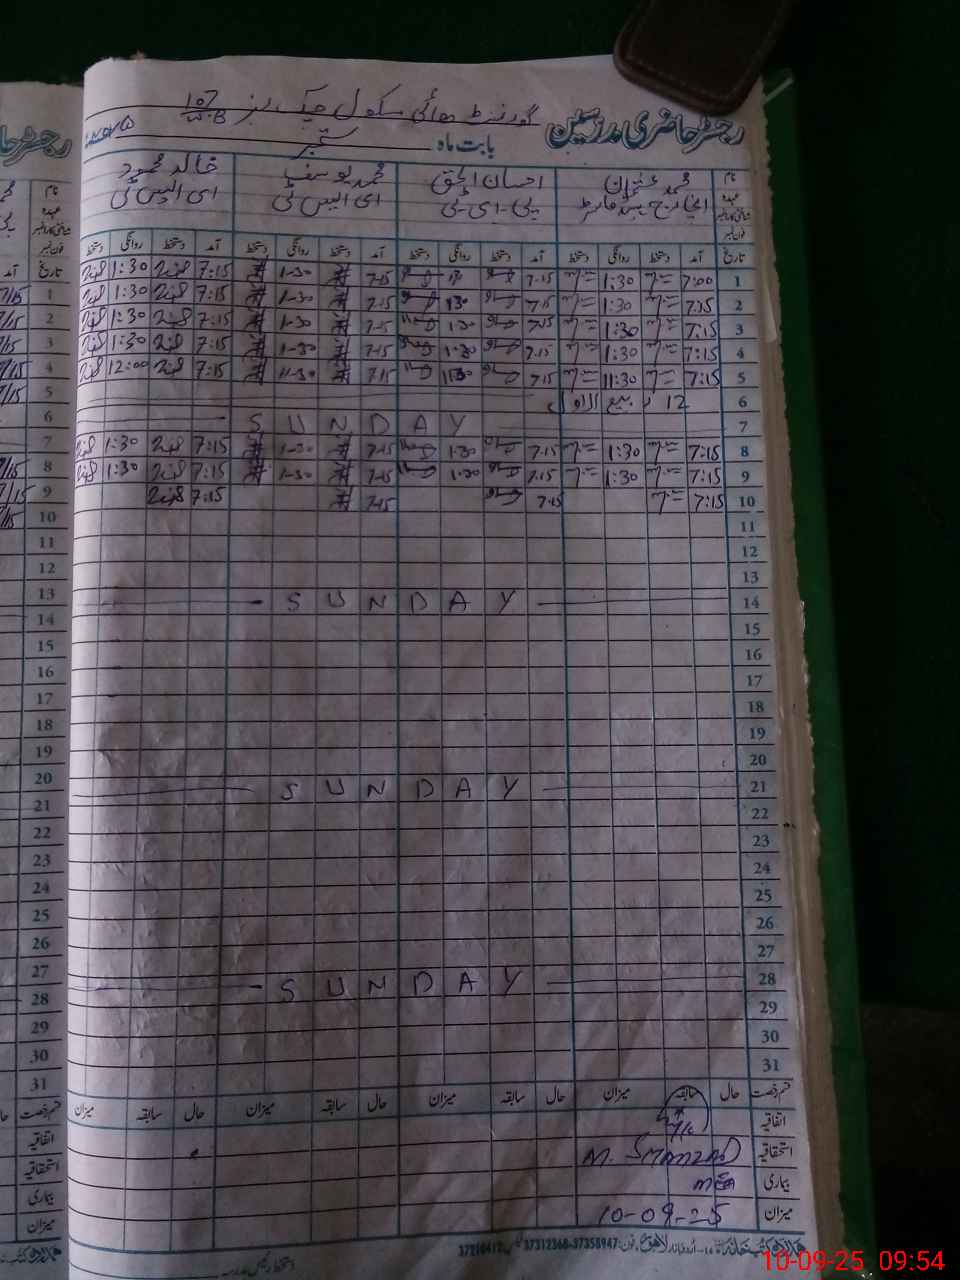 رجسٹر حاضری مدرسین گورنمنٹ ہائی سکول چک نمبر 107 W.B
بابت ماہ ستمبر 2025ء
نام محمد عمران احسان الحق محمد یوسف خالد محمود
عہدہ انچارج ہیڈ ماسٹر پی-ای-ٹی ای ایس ٹی ای ایس ٹی
شناختی کارڈ نمبر
فون نمبر
تاریخ آمد دستخط روانگی دستخط آمد دستخط روانگی دستخط آمد دستخط روانگی دستخط آمد دستخط روانگی دستخط
1 7:00 1:30 7.15 7.15 1-30 7:15 1:30
2 7:15 1:30 7.15 130 7.15 1-30 7:15 1:30
3 7:15 1:30 7.15 1.30 7.15 1-30 7:15 1:30
4 7:15 1:30 7.15 1.30 7.15 1-30 7:15 1:30
5 7:15 11:30 7.15 1130 7.15 11-30 7:15 12:00
6 12 ربیع الاول
7 SUNDAY
8 7:15 1:30 7.15 1.30 7.15 1-30 7:15 1:30
9 7:15 1:30 7.15 1.30 7.15 1-30 7:15 1:30
10 7:15 7.15 7.15 7:15
11
12
13
14 SUNDAY
15
16
17
18
19
20
21 SUNDAY
22
23
24
25
26
27
28 SUNDAY
29
30
31
قسم رخصت حال سابقہ میزان حال سابقہ میزان حال سابقہ میزان حال سابقہ میزان
اتفاقیہ
استحقاقیہ
بیماری MEA
میزان 10-09-25
دستخط رئیس مدرسہ
37210412 37312368-37358947
رجسٹر حا
تاریخ
1
2
3
4
5
6
7
8
9
10
11
12
13
14
15
16
17
18
19
20
21
22
23
24
25
26
27
28
29
30
31
قسم رخصت
اتفاقیہ
استحقاقیہ
بیماری
میزان
10-09-25 09:54